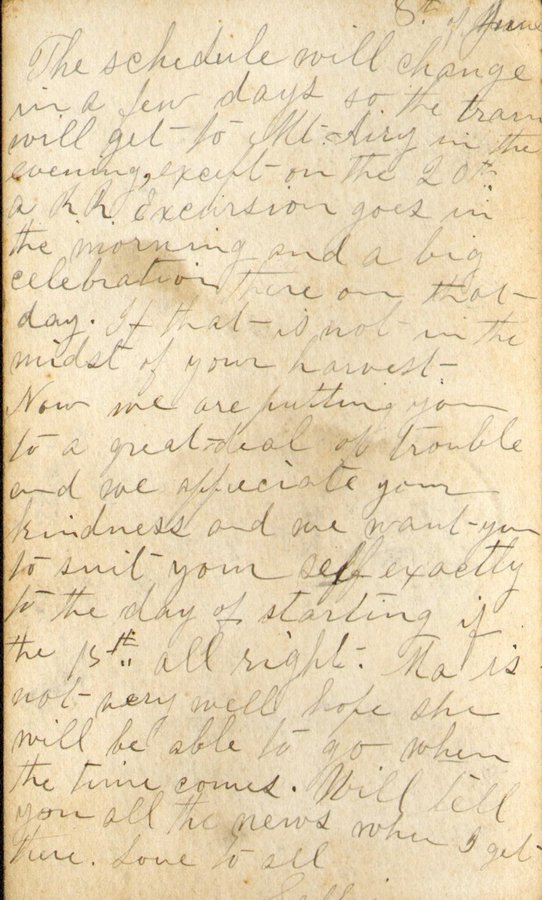 8th of June
The schedule will change
in a few days so the train
will get to Mt. Airy in the
evening, except on the 20th
a RR Excursion goes in
the morning and a big
celebration there on that
day. If that is not in the
midst of your harvest
Now we are putting you
to a great deal of trouble
and we appreciate your
kindness and we want you
to suit your self exactly
to the day of starting if
the 15th all right. Ma is
not very well hope she
will be able to go when
the time comes. Will tell
you all the news when I get
there. Love to all